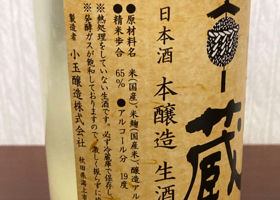 蔵
日本酒 本醸造 生酒
●原材料名 米(国産)、米麹(国産米)、醸造アル
●精米歩合 65% ●アルコール分 19度
※熱処理をしていない生酒です。必ず冷蔵庫で保存し
※発酵ガスが飽和しておりますので、激しく振らずに
製造者 小玉醸造株式会社
秋田県潟上市